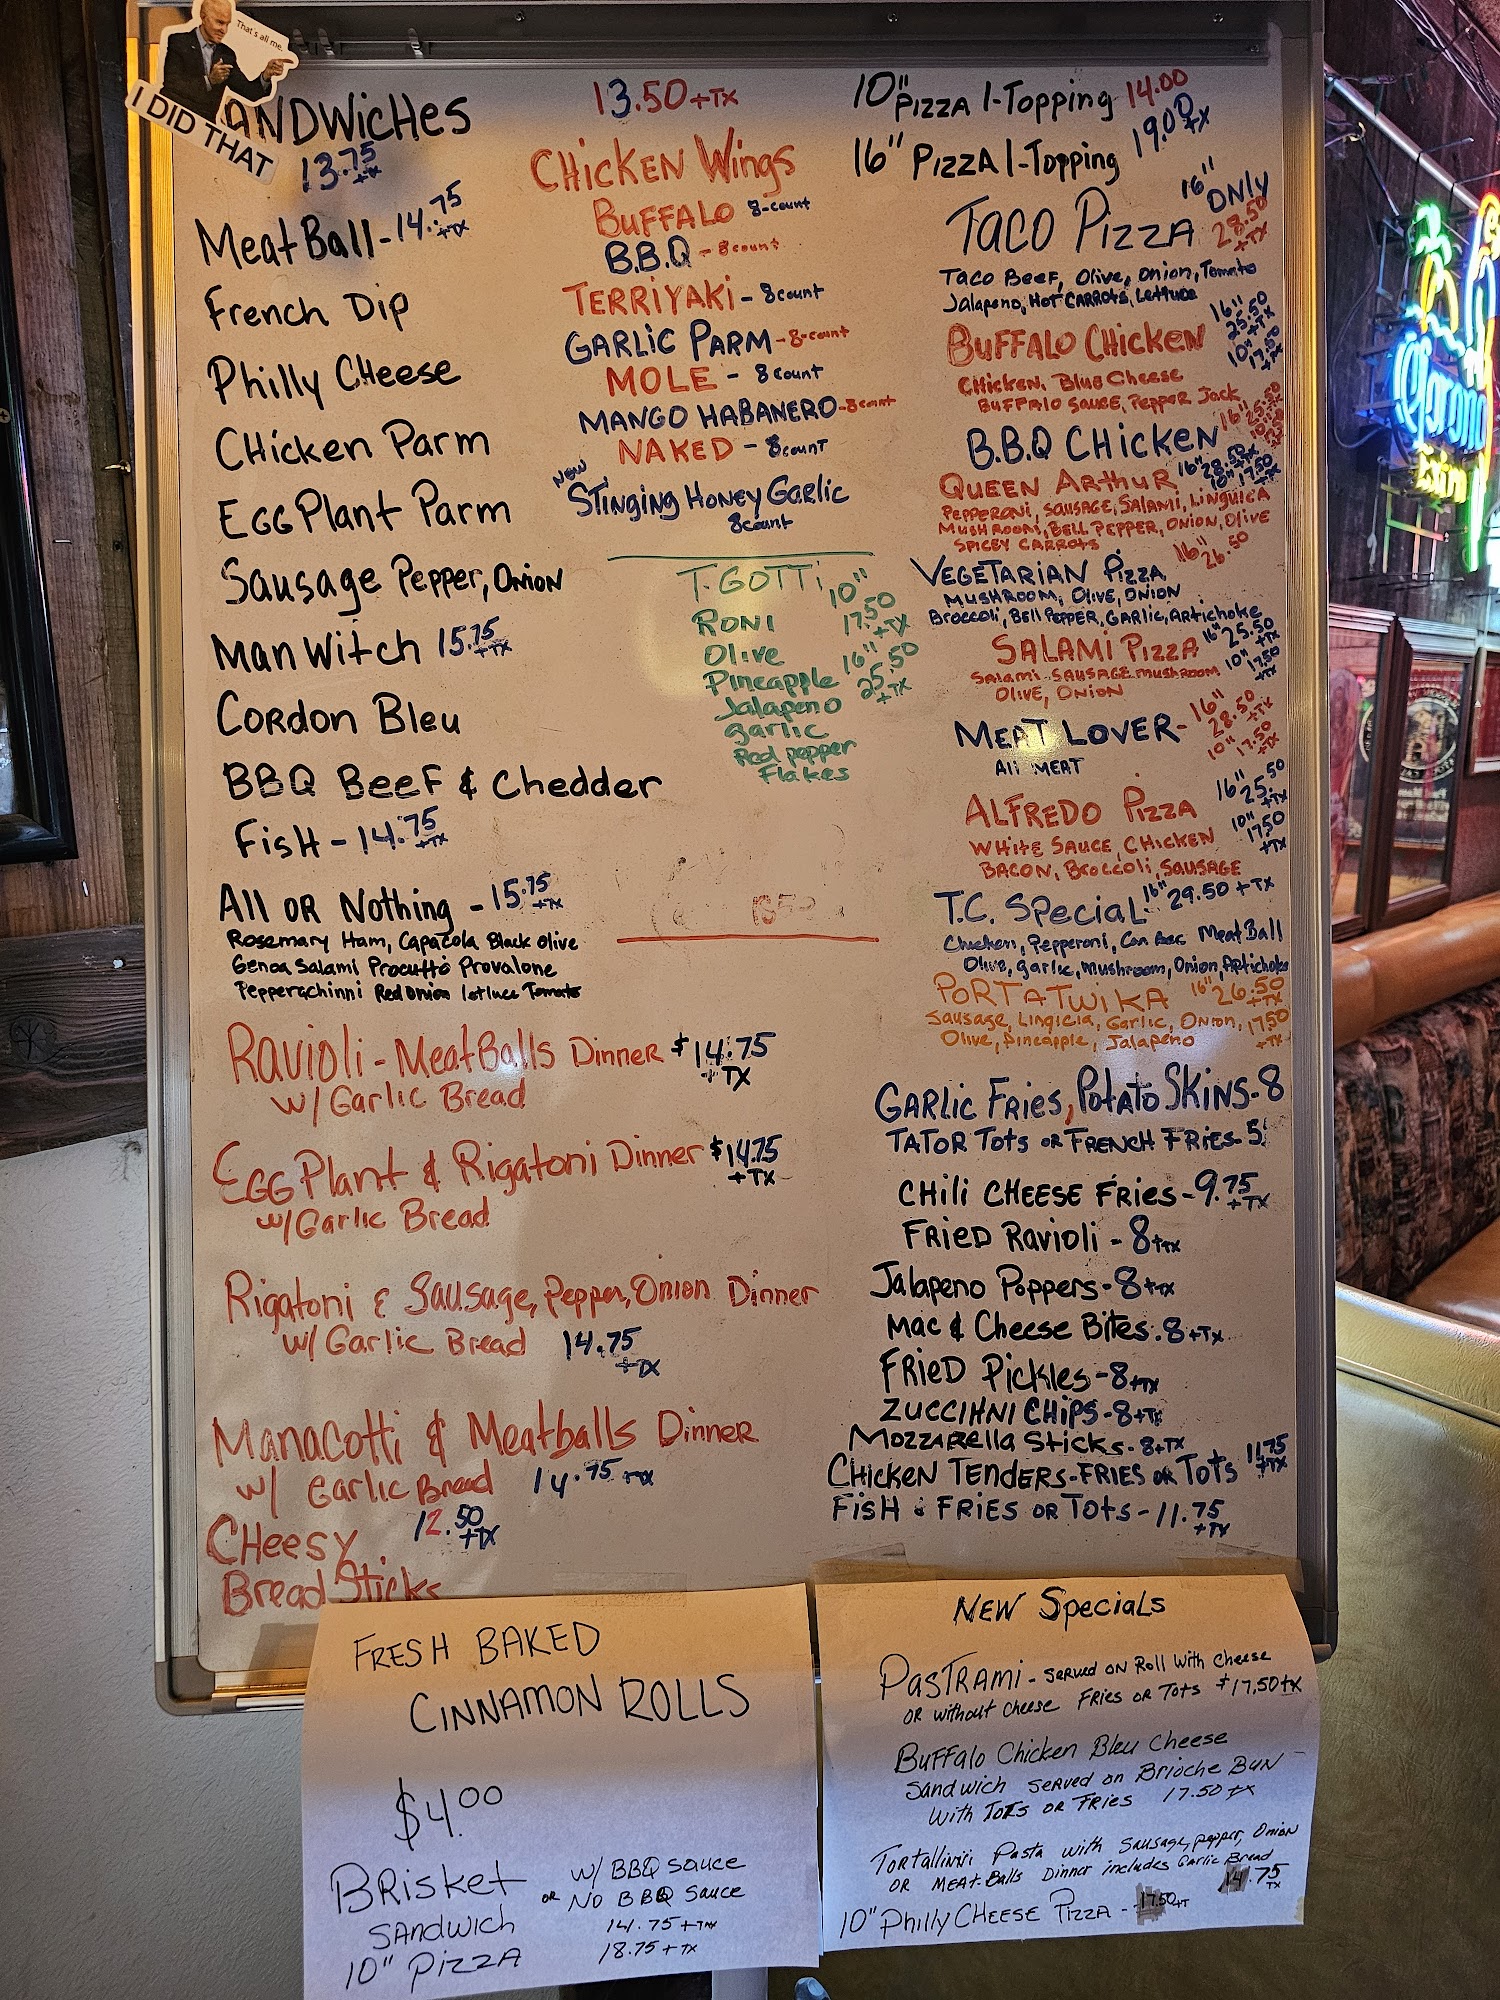 That's all me.
I DID THAT
ANDWicHes
13.75 +TX
MeatBall - 14.75 +TX
French Dip
Philly CHeese
CHicken Parm
EGGPlant Parm
Sausage Pepper, Onion
Man Witch 15.75 +TX
Cordon Bleu
BBQ Beef & Chedder
FisH - 14.75 +TX
All or Nothing - 15.75 +TX
Rosemary Ham, Capacola Black Olive
Genoa Salami Procutto Provalone
Pepperachinni Red Onion lettuce Tomato
Ravioli - MeatBalls Dinner $14.75 +TX
w/ Garlic Bread
EGG Plant & Rigatoni Dinner $14.75 +TX
w/Garlic Bread
Rigatoni & Sausage, Pepper, Onion Dinner
w/ Garlic Bread 14.75 +TX
Manacotti & Meatballs Dinner
w/ Garlic Bread 14.75 +TX
CHeesy 12.50 +TX
Bread Sticks
13.50 +TX
CHICKEN Wings
BUFFALO 8-count
B.B.Q - 8 count
TERRIYAKI - 8 count
GARLIC PARM - 8-count
MOLE - 8 count
MANGO HABANERO - 8 count
NAKED - 8 count
NEW
STINGING HONEY GARLIC
8 count
T. GOTTi
10"
RONI 17.50 +TX
Olive
16"
Pineapple 25.50 +TX
Jalapeno
garlic
Red pepper
Flakes
10" PIZZA 1-Topping 14.00
16" PIZZA 1-Topping 19.00 +TX
TACO PIZZA 16" ONLY 28.50 +TX
Taco Beef, Olive, Onion, Tomato
Jalapeno, Hot CARROTS, Lettuce
BUFFALO CHICKEN 16" 25.50 +TX 10" 17.50 +TX
CHicken, Blue Cheese
BUFFALO SAUCE, Pepper Jack
B.B.Q CHICKEN 16" 25.50
QUEEN ARTHUR 16" 28.50 +TX 10" 17.50 +TX
PEPPERONI, SAUSAGE, SALAMI, LINGUICA
MUSHROOM, BELL PEPPER, ONION, OLIVE
SPICEY CARROTS
VEGETARIAN PIZZA 16" 26.50
MUSHROOM, OLIVE, ONION
Broccoli, BELL PEPPER, GARLIC, Artichoke
SALAMI PIZZA 16" 25.50 +TX 10" 17.50 +TX
Salami SAUSAGE MUSHROOM
OLIVE, ONION
MEAT LOVER - 16" 28.50 +TX 10" 17.50 +TX
All MEAT
ALFREDO PIZZA 16" 25.50 +TX 10" 17.50 +TX
WHITE SAUCE, CHICKEN
BACON, BROCCOLI, SAUSAGE
T.C. SPECIAL 16" 29.50 + TX
Chicken, Pepperoni, Can Bac MeatBall
Olive, garlic, mushroom, Onion, Artichoke
PORTATWIKA 16" 26.50 +TX
Sausage, Lingicia, Garlic, Onion, 17.50 +TX
Olive, Pineapple, Jalapeno
GARLIC FRIES, Potato SKINS - 8
TATOR Tots OR FRENCH FRIES - 5
CHili CHEESE FRies - 9.75 +TX
FRIED RAVIOLI - 8 +TX
Jalapeno Poppers - 8 +TX
Mac & Cheese Bites. 8 +TX
FRIED Pickles - 8 +TX
ZUCCIHNI CHIPS - 8 +TX
MOZZARELLA STICKS - 8 +TX
CHICKEN TENDERS - FRIES OR TOTS 11.75 +TX
FISH & FRIES OR TOTS - 11.75 +TX
Corona
Extra
FRESH BAKED
CINNAMON ROLLS
$4.00
BRisket w/ BBQ SAUCE
or NO BBQ SAUCE
SANDWICH 14.75 + TX
10" PIZZA 18.75 + TX
NEW Specials
PASTRAMI - SERVED ON Roll With Cheese
OR without Cheese FRIES OR TOTS $17.50 +TX
BUFFALO CHICKEN Bleu Cheese
Sandwich SERVED ON BRIOCHE BUN
With TOTS OR FRIES 17.50 +TX
TORTALLINNI Pasta with Sausage, pepper, Onion
OR MEAT-Balls Dinner includes Garlic Bread
14.75 TX
10" Philly CHEESE PIZZA - 17.50 +T